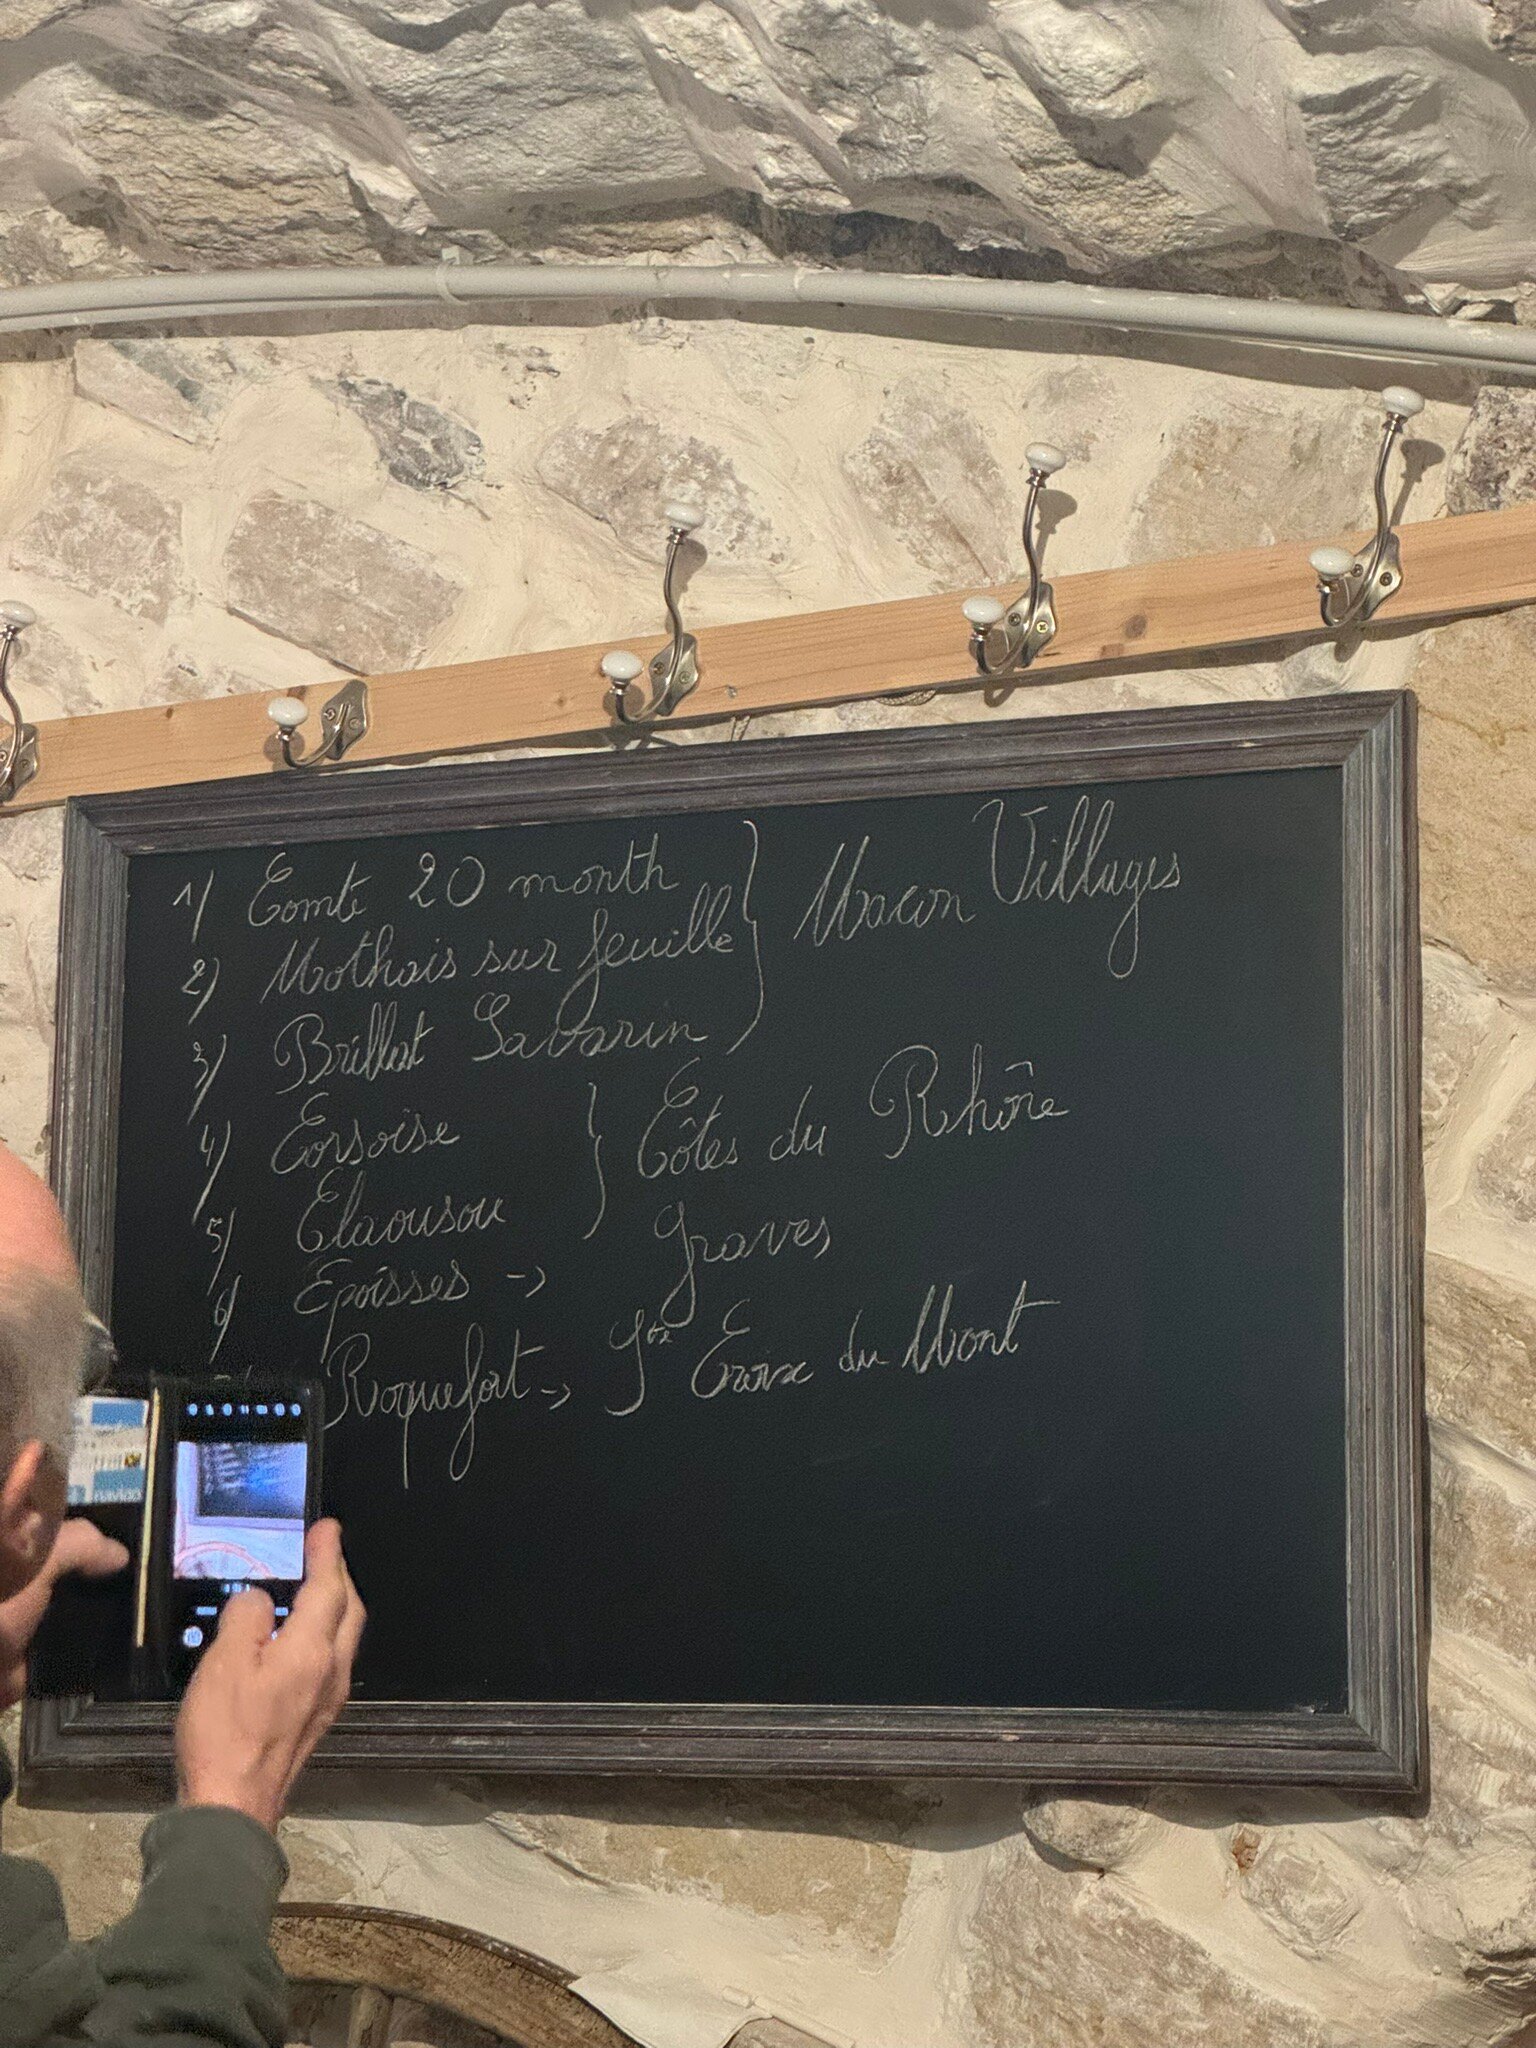 1) Comté 20 month
2) Mothais sur feuille
3) Brillat Savarin
} Macon Villages
4) Corsoise
5) Claousou
} Côtes du Rhône
6) Epoisses -> Graves
Roquefort -> Ste Croix du Mont